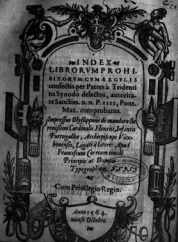 INDEX
LIBRORVM PROHI
BITORVM CVM REGVLIS
confectis per Patres à Tridenti
na Synodo delectos, autorita
te Sanctiss. D. N. PII IIII, Pont.
Max. comprobatus.
Impressus Olyssippone de mandato Se
renissimi Cardinalis Henrici, Infantis
Portugalliæ, Archiepiscopi Vlix
bonensis, Legati à latere: Apud
Franciscum Corream eiusdē
Principis ac Domini
Typographum.
Cum Privilegio Regio.
Anno 1564.
mense Octobr.